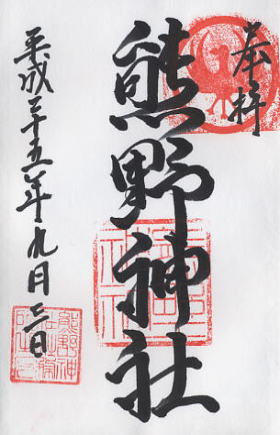 奉拝
熊野神社
平成二十五年九月二日